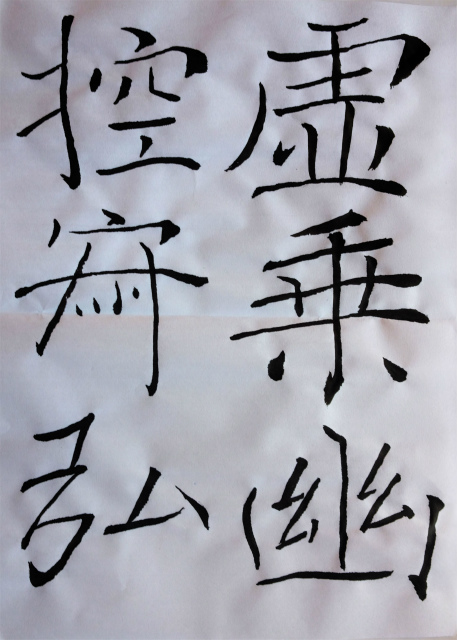 虚乘幽
控寂弘